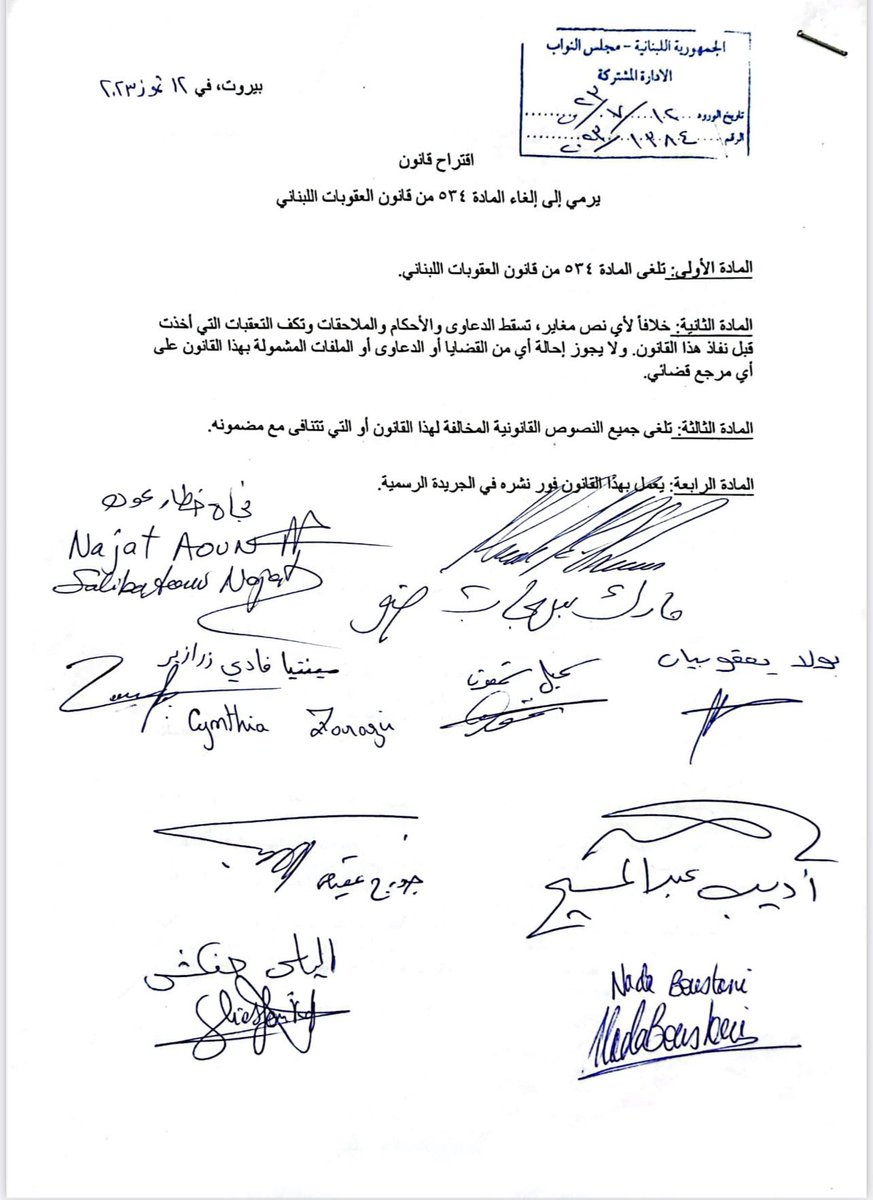 الجمهورية اللبنانية - مجلس النواب
الادارة المشتركة
تاريخ الورود ١٢/٠٧/٢٣
الرقم
بيروت، في ١٢ تموز ٢٠٢٣
اقتراح قانون
يرمي إلى إلغاء المادة ٥٣٤ من قانون العقوبات اللبناني
المادة الأولى: تلغى المادة ٥٣٤ من قانون العقوبات اللبناني.
المادة الثانية: خلافاً لأي نص مغاير، تسقط الدعاوى والأحكام والملاحقات وتكف التعقبات التي أخذت
قبل نفاذ هذا القانون. ولا يجوز إحالة أي من القضايا أو الدعاوى أو الملفات المشمولة بهذا القانون على
أي مرجع قضائي.
المادة الثالثة: تلغى جميع النصوص القانونية المخالفة لهذا القانون أو التي تتنافى مع مضمونه.
المادة الرابعة: يعمل بهذا القانون فور نشره في الجريدة الرسمية.
نجاة خطار عون
Najat AOUN
Saliba Aoun Najat
مارك بهجات ضو
بولا يعقوبيان
سينتيا فادي زرازير
Cynthia Zarazir
أديب عبد المسيح
جورج عقيص
الياس حنكش
Nada Boustani
Nada Boustani